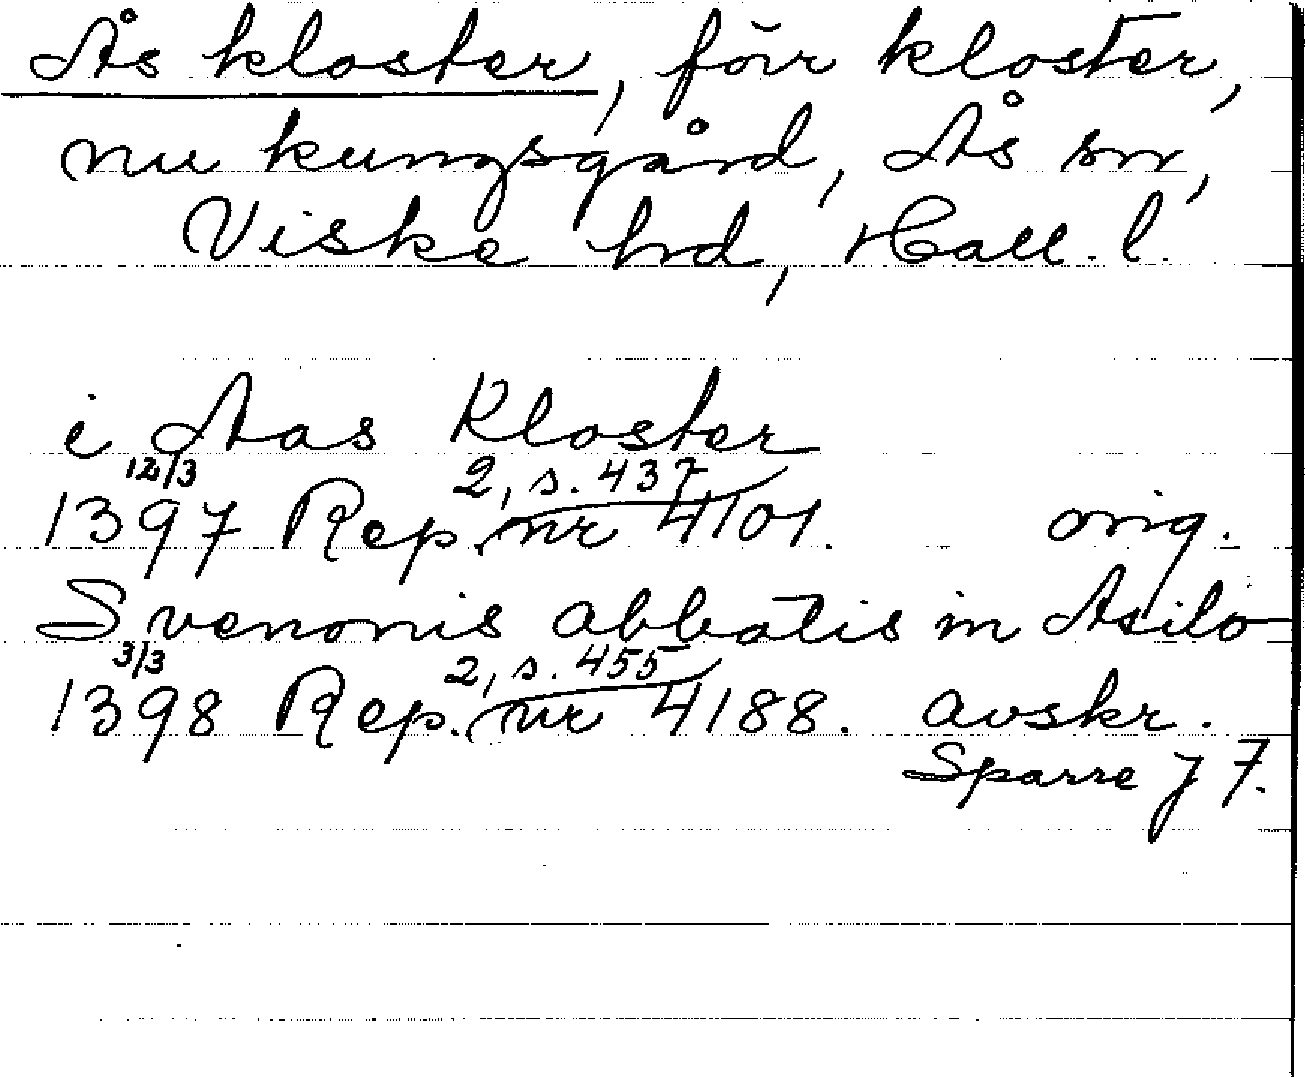 Ås kloster, förr kloster,
nu kungsgård, Ås sn,
Viske hd, Hall. l.
i Aas Kloster
12/3 2, s. 437
1397 Rep. nr 4101. orig.
Svenonis abbatis in Asilo
3/3 2, s. 455
1398 Rep. nr 4188. avskr.
Sparre J 7.